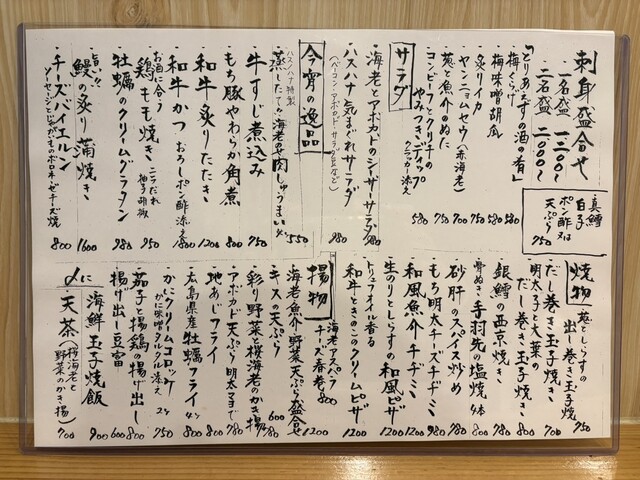 刺身盛合せ
一名盛 一三〇〇〜
二名盛 二〇〇〇〜
「とりあえずの酒の肴」
梅くらげ 580
梅味噌胡瓜 580
炙りイカ 700
ヤンニョムセウ(赤海老) 750
葱と魚介のぬた 750
コンビーフとクリチの
やみつきディップ
クラッカー添え 580
サラダ
海老とアボカドのシーザーサラダ 980
ハスハナ気まぐれサラダ 980
今宵の逸品
ハスノハナ特製
蒸したての海老の芋肉しゅうまい 4ヶ 550
牛すじ煮込み 750
もち豚やわらか角煮 800
和牛炙りたたき 1200
和牛かつ おろしポン酢添え 800
お酒に合う
鶏もも焼き ニラだれ 柚子胡椒 950
牡蠣のクリームグラタン 980
旨い!!
鰻の炙り蒲焼き 1600
チーズバイエルン
ソーセージとじゃがいものボロネーゼチーズ焼 800
真鱈
白子
ポン酢又は
天ぷら 750
焼物
葱としらすの
出し巻き玉子焼 750
だし巻き玉子焼き 700
明太子と大葉の
だし巻き玉子焼き 800
銀鱈の西京焼き 800
骨ぬき手羽先の塩焼 4本 780
砂肝のスパイス炒め 780
もち明太チーズチヂミ 980
和風魚介チヂミ 1200
生のりとしらすの和風ピザ 1200
トリュフオイル香る
和牛ときのこのクリームピザ 1200
揚物
海老アスパラ
チーズ春巻 800
海老魚介野菜天ぷら盛合せ 1200
キスの天ぷら 600
彩り野菜と桜海老のかき揚 780
アボカド天ぷら 明太マヨで 780
地あじフライ 800
広島県産牡蠣フライ 4ヶ 800
かにクリームコロッケ
かに味噌タルタル添え 2ヶ 750
茄子と揚鶏の揚げ出し 800
揚げ出し豆富 600
〆に
海鮮玉子焼飯 900
天茶(桜海老と
野菜のかき揚) 700